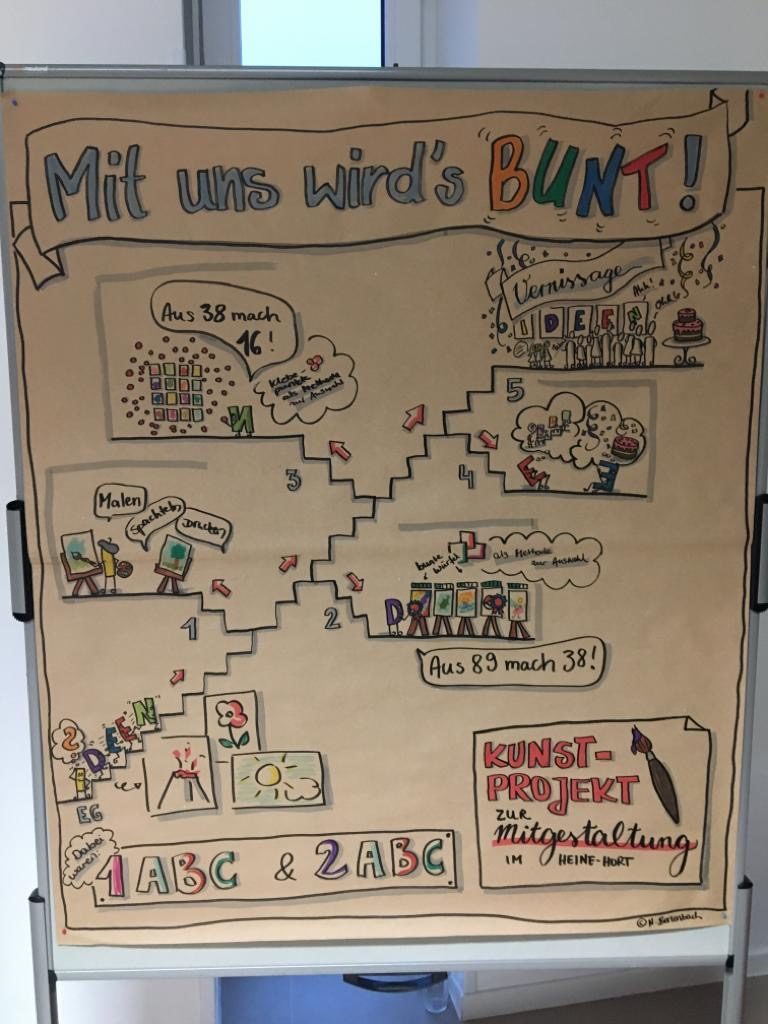 Mit uns wird's BUNT!
Vernissage
Ahh!
Ohh!
IDEEN
Aus 38 mach
16!
Klebe-
punkte
als Methode
zur Auswahl
N
3
5
4
E
E
Malen
Spachteln
Drucken
1
2
bunte
Würfel
als Methode
zur Auswahl
D
Aus 89 mach 38!
?
DEEN
EG
KUNST-
PROJEKT
ZUR
Mitgestaltung
IM HEINE-HORT
Dabei
waren:
1ABC & 2ABC